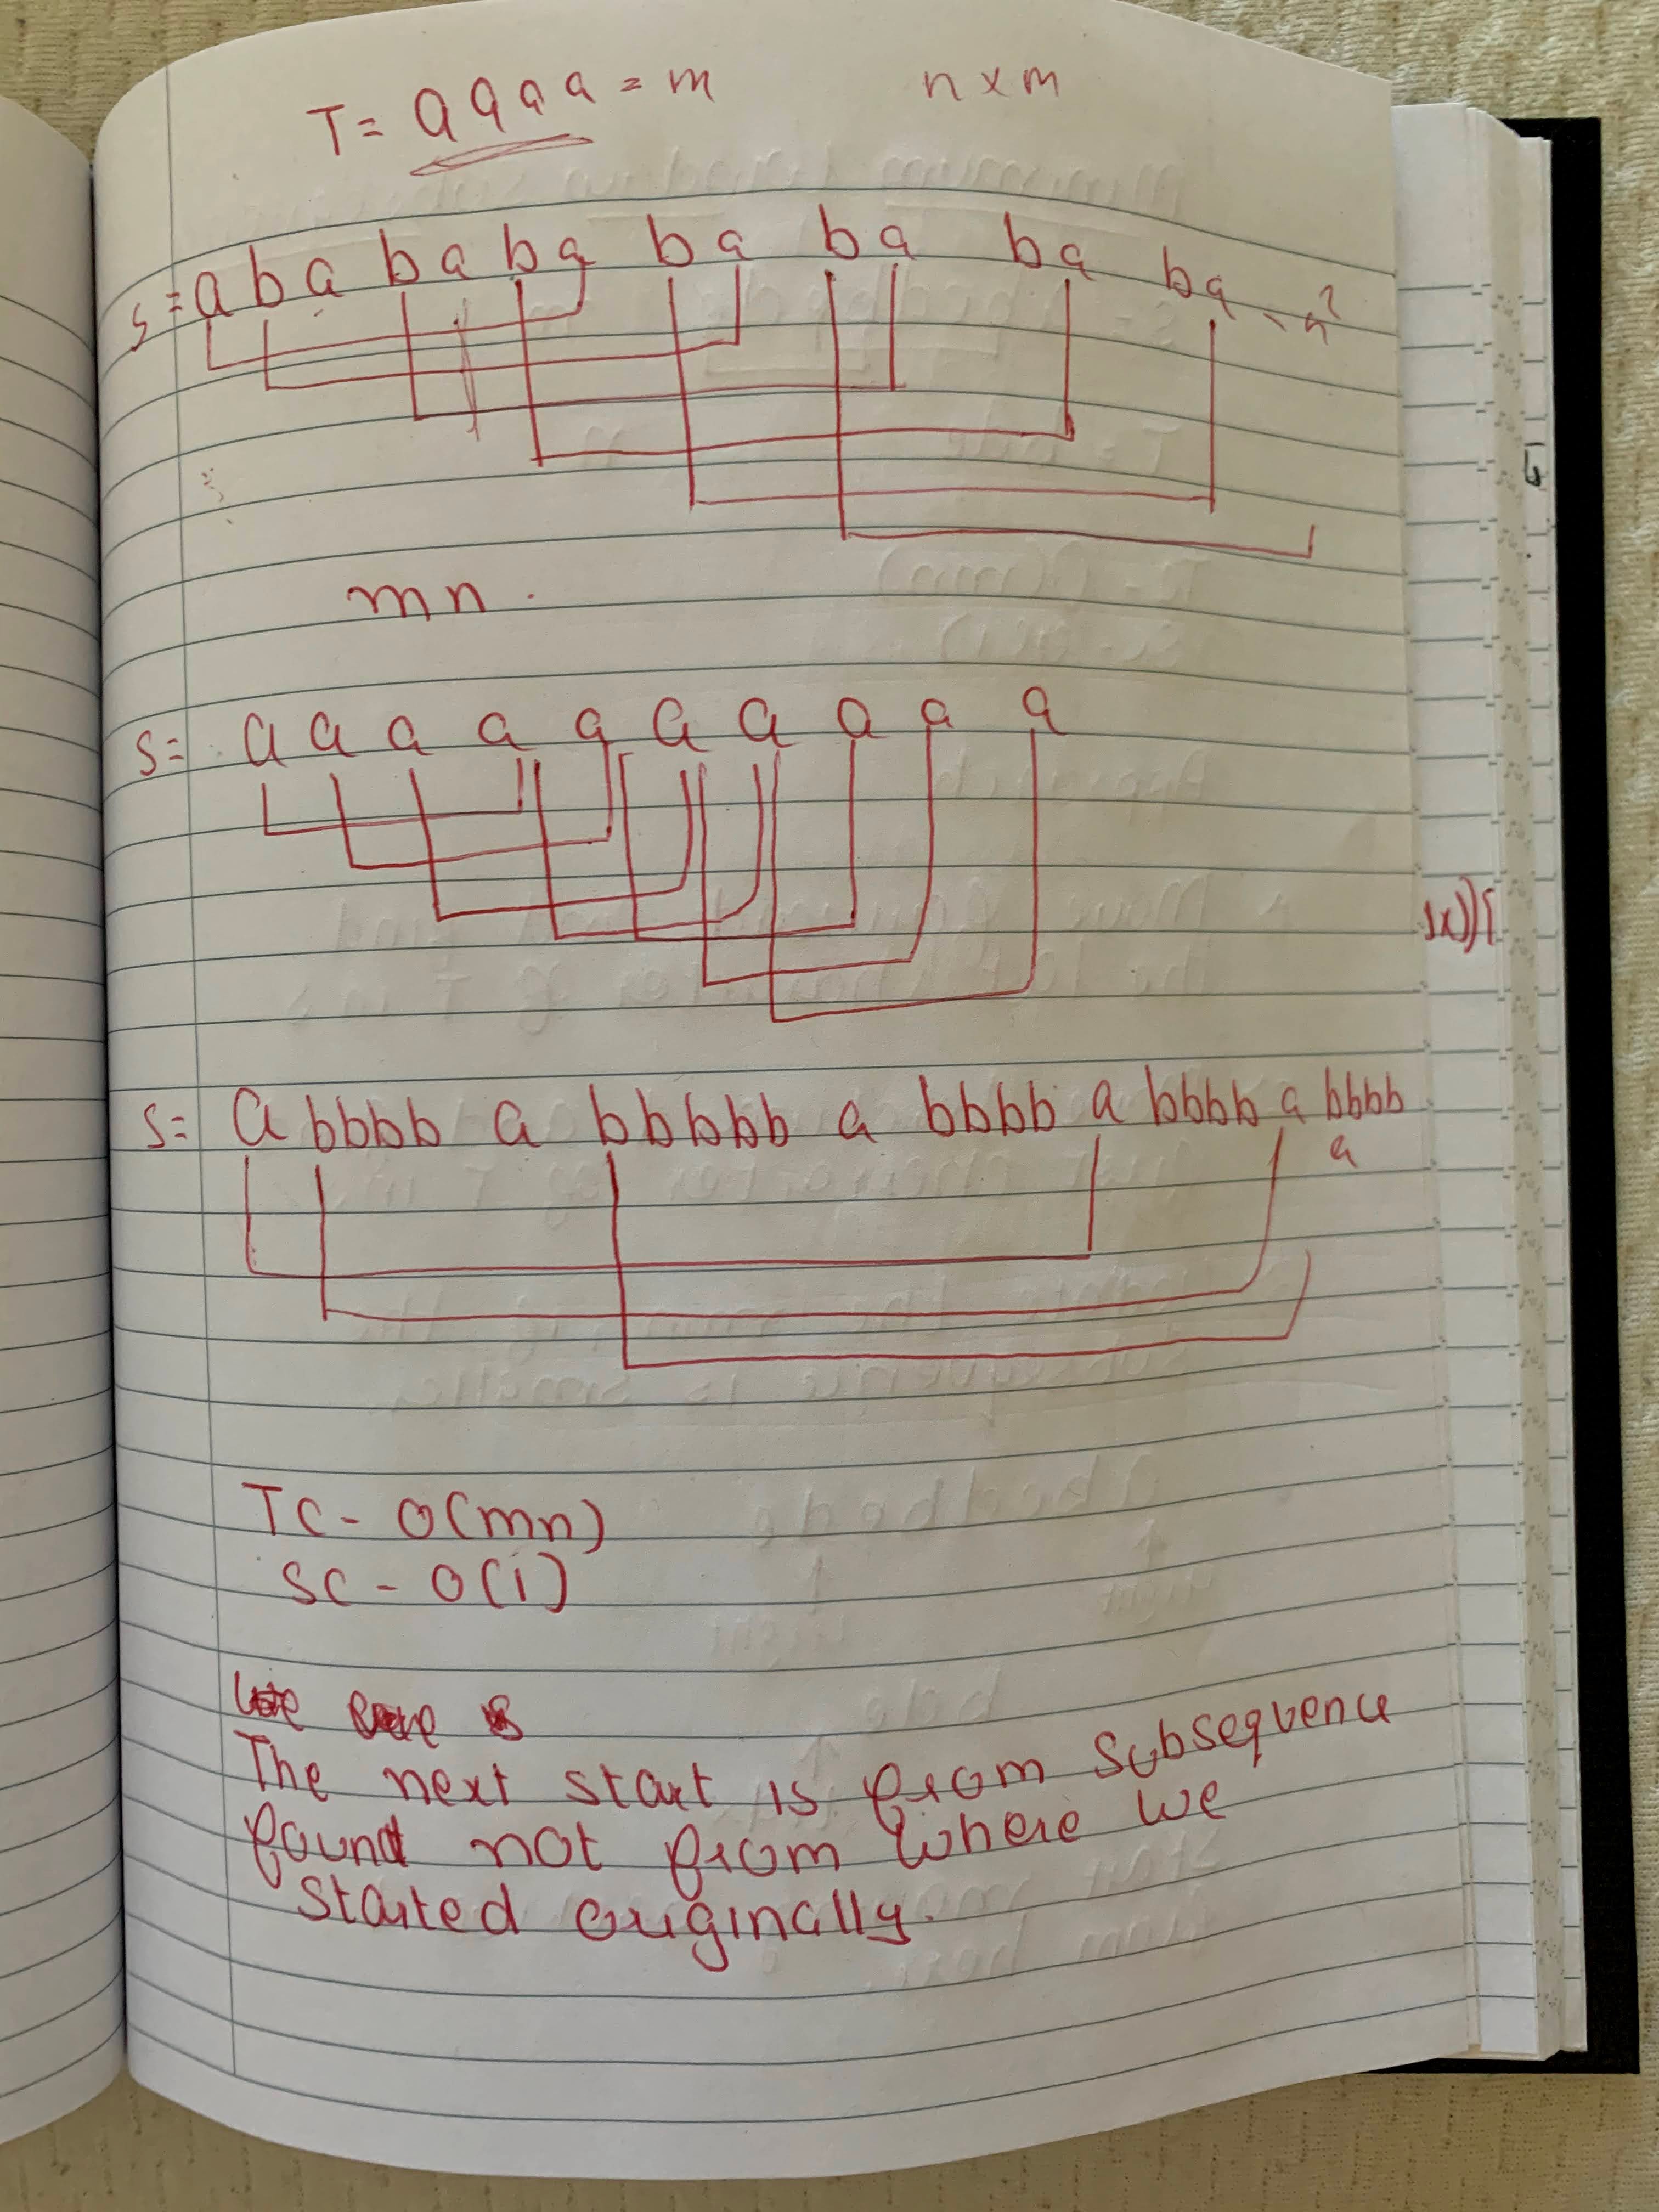 T = a a a a = m n x m
S = a b a b a b a b a b a b a b a - n²
mn.
S = a a a a a a a a a a
S = a bbbb a bbbbb a bbbb a bbbb a bbbb
a
TC - O(mn)
SC - O(1)
The next start is from subsequence
found not from where we
started originally.